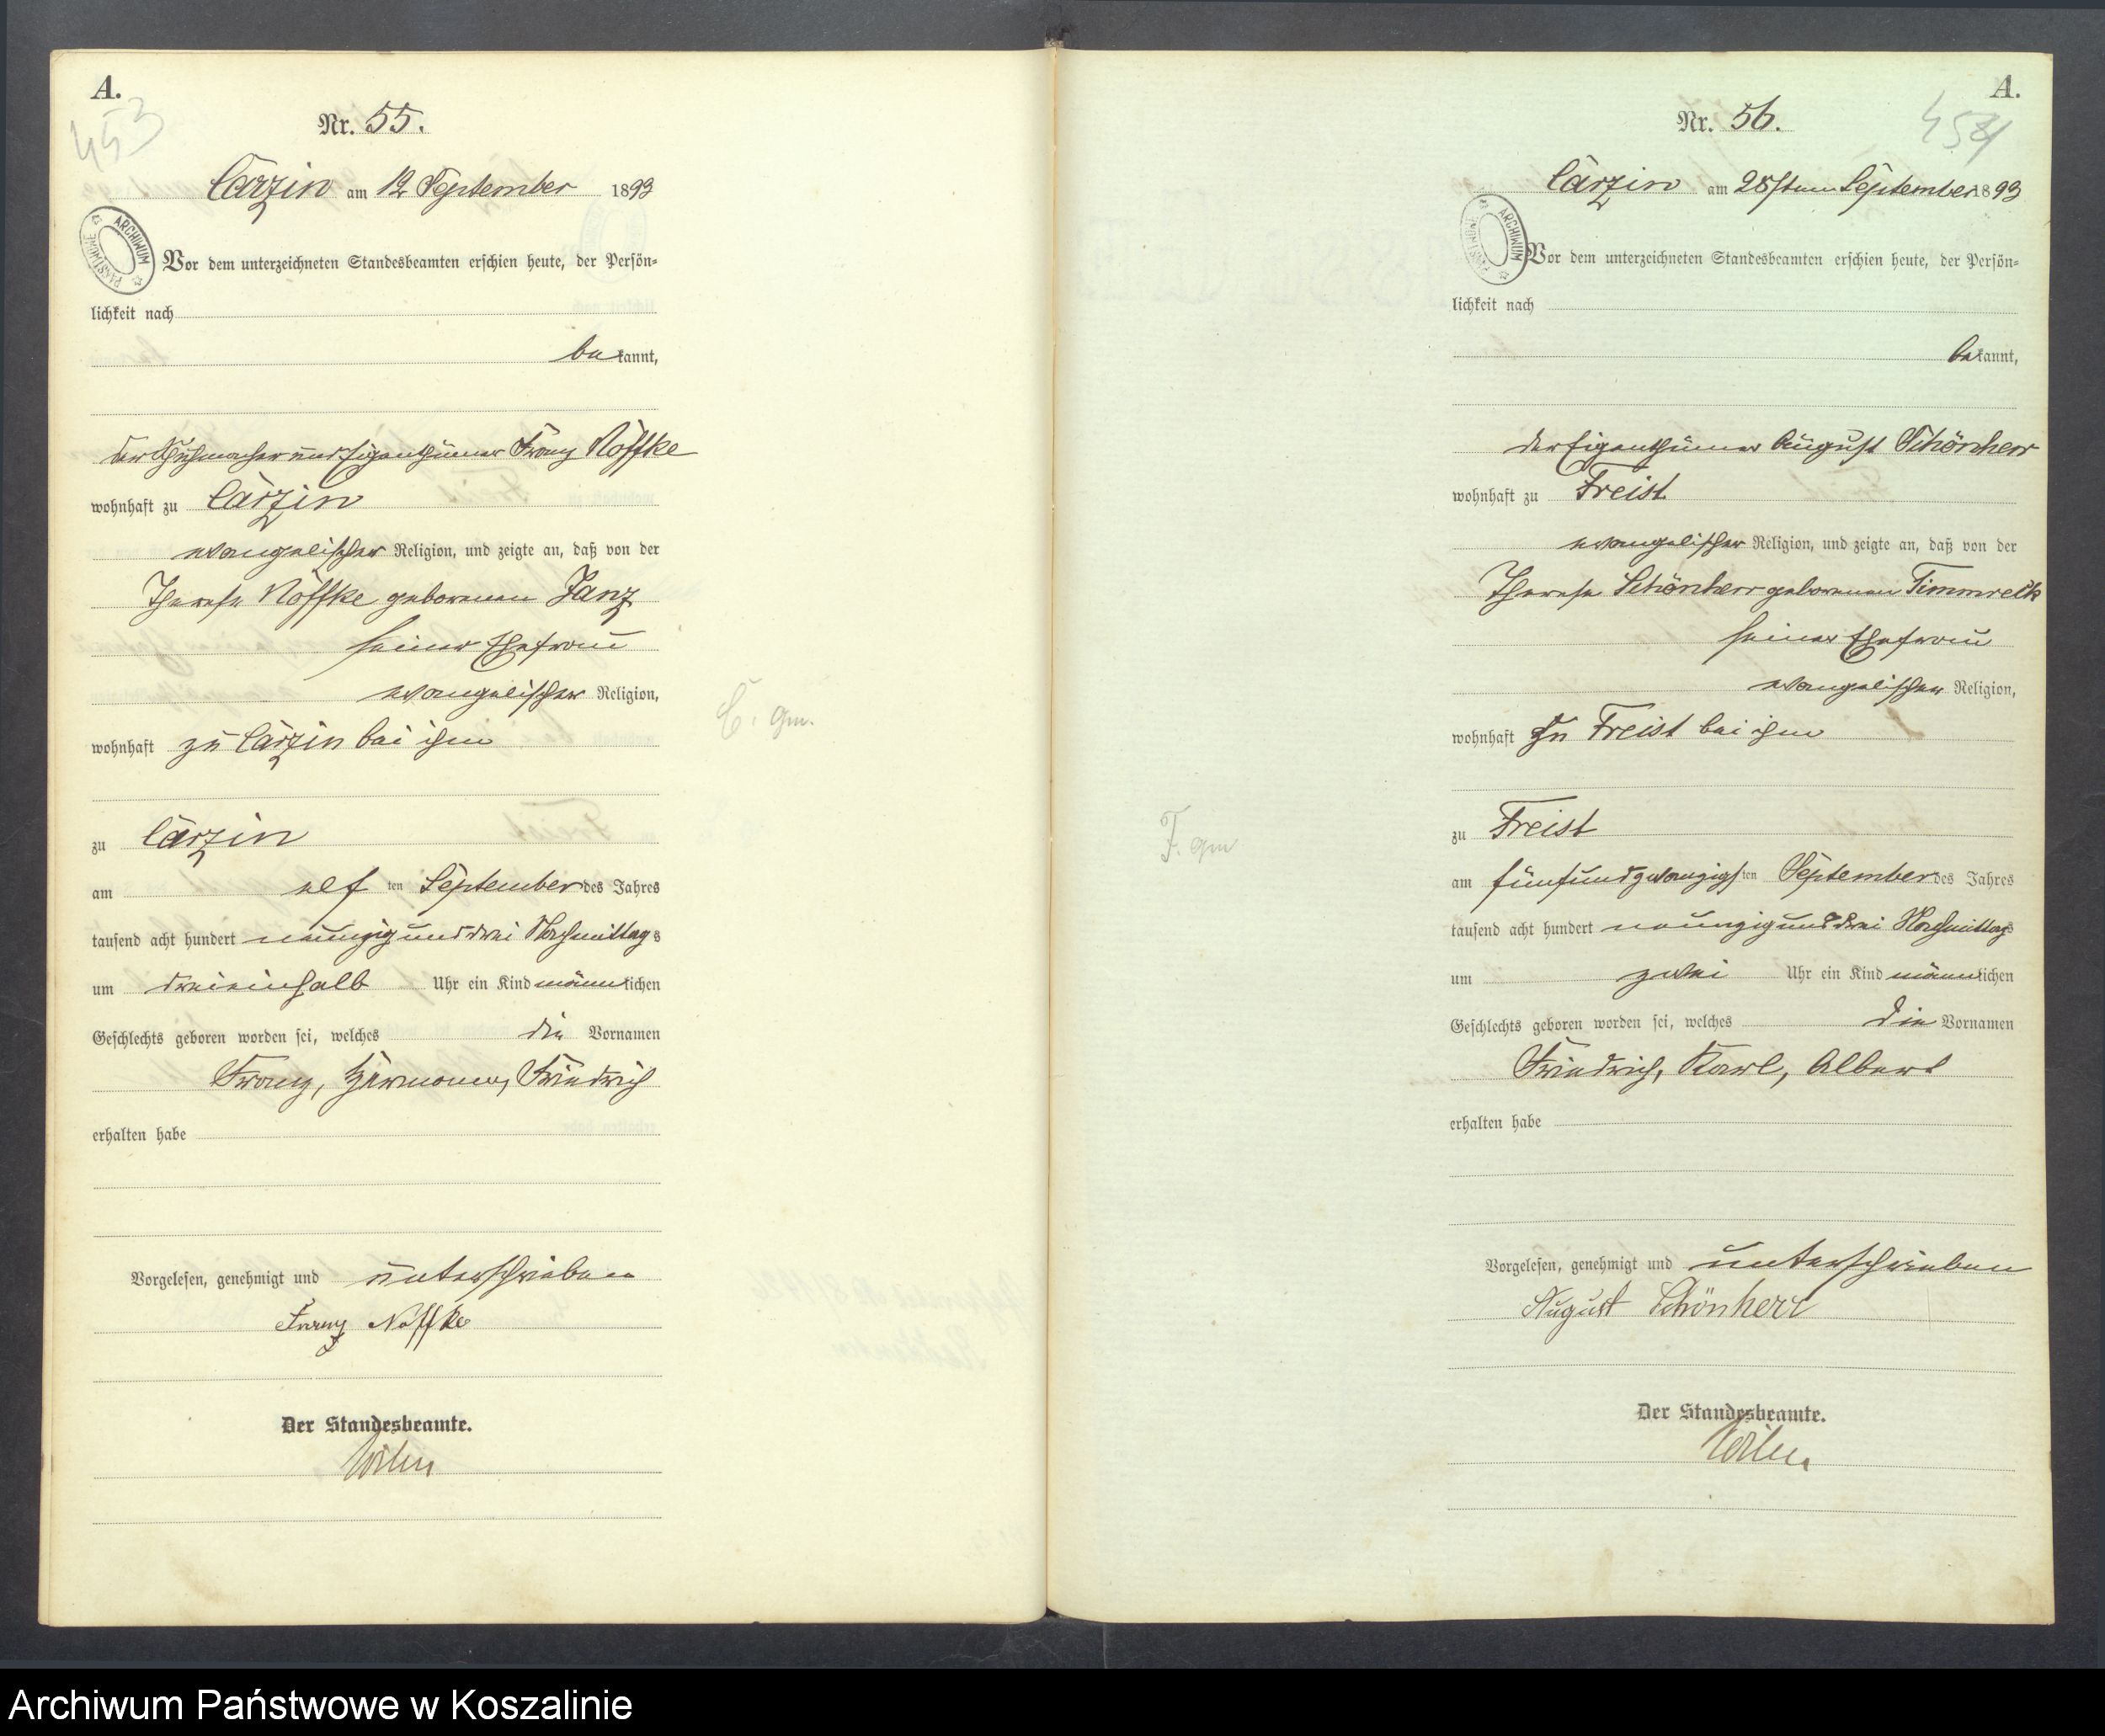 A.
453
Nr. 55.
Carzin am 12 September 1893
ARCHIWUM PAŃSTWOWE
Vor dem unterzeichneten Standesbeamten erschien heute, der Persön-
lichkeit nach
bekannt,
der Schuhmacher und Eigenthümer Franz Noffke
wohnhaft zu Carzin
evangelischer Religion, und zeigte an, daß von der
Therese Noffke geborenen Janz
seiner Ehefrau
evangelischer Religion,
wohnhaft zu Carzin bei ihm
C. gm.
zu Carzin
am elf ten September des Jahres
tausend acht hundert neunzig und drei Nachmittags
um dreieinhalb Uhr ein Kind männlichen
Geschlechts geboren worden sei, welches die Vornamen
Franz, Hermann, Friedrich
erhalten habe
Vorgelesen, genehmigt und unterschrieben
Franz Noffke
Der Standesbeamte.
A.
454
Nr. 56.
Carzin am 28sten September 1893
ARCHIWUM PAŃSTWOWE
Vor dem unterzeichneten Standesbeamten erschien heute, der Persön-
lichkeit nach
bekannt,
der Eigenthümer August Schönherr
wohnhaft zu Freist
evangelischer Religion, und zeigte an, daß von der
Therese Schönherr geborenen Timmreck
seiner Ehefrau
evangelischer Religion,
wohnhaft zu Freist bei ihm
F. gm
zu Freist
am fünfundzwanzigsten September des Jahres
tausend acht hundert neunzig und drei Nachmittags
um zwei Uhr ein Kind männlichen
Geschlechts geboren worden sei, welches die Vornamen
Friedrich, Karl, Albert
erhalten habe
Vorgelesen, genehmigt und unterschrieben
August Schönherr
Der Standesbeamte.
Archiwum Państwowe w Koszalinie